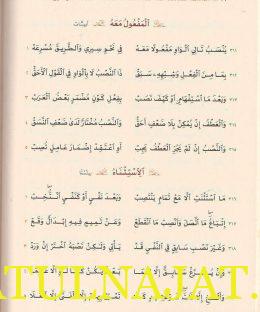 الْمَفْعُولُ مَعَهُ
يُنْصَبُ تَالِي الْوَاوِ مَفْعُولًا مَعَهْ فِي نَحْوِ سِيرِي وَالطَّرِيقَ مُسْرِعَهْ
بِمَا مِنَ الْفِعْلِ وَشِبْهِهِ سَبَقْ ذَا النَّصْبُ لَا بِالْوَاوِ فِي الْقَوْلِ الْأَحَقّْ
وَبَعْدَ مَا اسْتِفْهَامٍ أَوْ كَيْفَ نَصَبْ بِفِعْلِ كَوْنٍ مُضْمَرٍ بَعْضُ الْعَرَبْ
وَالْعَطْفُ إِنْ يُمْكِنْ بِلَا ضَعْفٍ أَحَقّْ وَالنَّصْبُ مُخْتَارٌ لَدَى ضَعْفِ النَّسَقْ
وَالنَّصْبُ إِنْ لَمْ يَجُزِ الْعَطْفُ يَجِبْ أَوِ اعْتَقِدْ إِضْمَارَ عَامِلٍ تُصِبْ
الِاسْتِثْنَاءُ
مَا اسْتَثْنَتِ الَّا مَعْ تَمَامٍ يَنْتَصِبْ وَبَعْدَ نَفْيٍ أَوْ كَنَفْيٍ انْتُخِبْ
إِتْبَاعُ مَا اتَّصَلَ وَانْصِبْ مَا انْقَطَعْ وَعَنْ تَمِيمٍ فِيهِ إِبْدَالٌ وَقَعْ
وَغَيْرُ نَصْبِ سَابِقٍ فِي النَّفْيِ قَدْ يَأْتِي وَلَكِنْ نَصْبَهُ اخْتَرْ إِنْ وَرَدْ
ATULNAJAT.